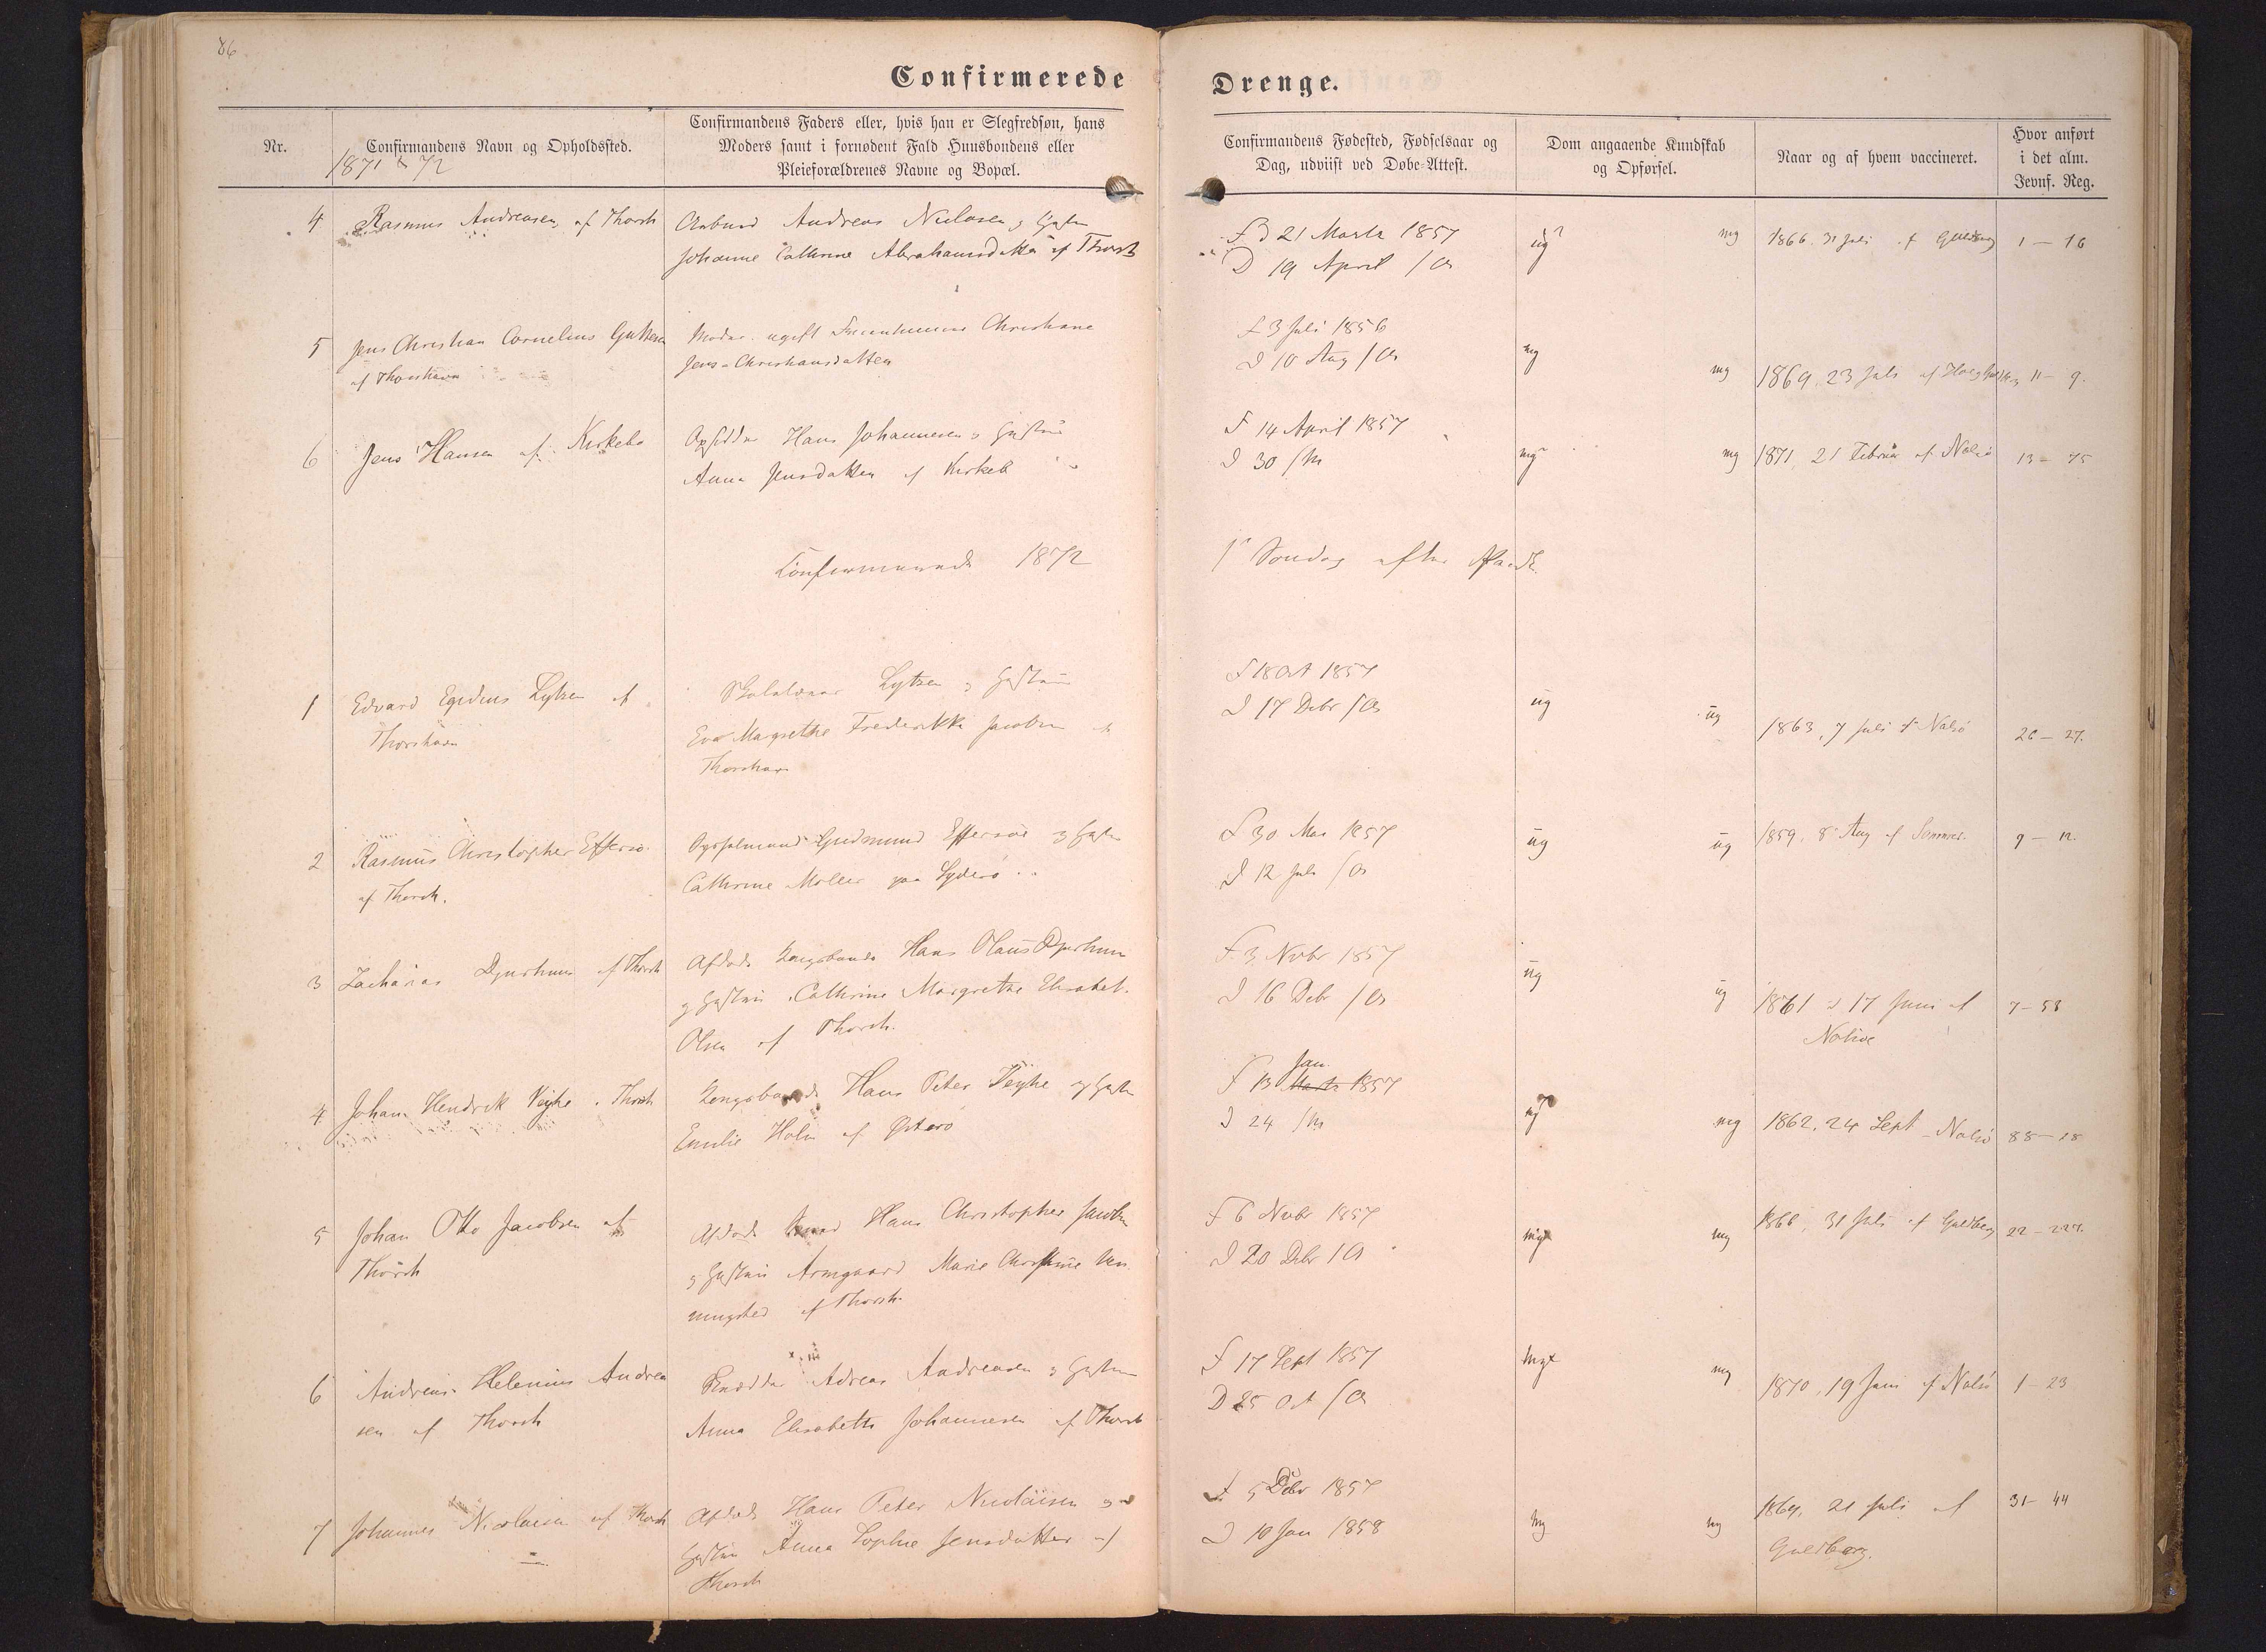 86
Confirmerede Drenge.
Nr.
Confirmandens Navn og Opholdssted.
1871 & 72
Confirmandens Faders eller, hvis han er Slegfredsøn, hans
Moders samt i fornødent Fald Huusbondens eller
Pleieforældrenes Navne og Bopæl.
Confirmandens Fødested, Fødselsaar og
Dag, udviist ved Døbe-Attest.
Dom angaaende Kundskab
og Opførsel.
Naar og af hvem vaccineret.
Hvor anført
i det alm.
Jevnf. Reg.
4 Rasmus Andreasen, af Thorsh
Andreas Nielsen og Hustru
Johanne Cathrine Abrahamsdatter af Thorsh
F d 21 Marts 1857
D 19 April / A
ug? mg 1866. 31 Juli af Guldberg 1 — 16
5 Jens Christian Cornelius
af Thorshavn
Moder. ugift Christiane
Jens-Christiansdatter
F 3 Juli 1856
D 10 Aug / A
mg mg 1869. 23 Juli af 11 — 9.
6 Jens Hansen af Kirkebø
Opsidder Hans Johannesen og Hustru
Anna Jensdatter af Kirkeb
F 14 April 1857
D 30 / M
mg mg 1871, 21 Februar af Nolsø 13 — 75
Confirmerede 1872 1ste Søndag efter Paaske.
1 Edvard Egidius Lytzen af
Thorshavn
Skolelærer Lytzen og Hustru
Eva Magrethe Frederikke Jacobsen af
Thorshavn
F 18 Oct 1857
D 17 Debr / A
ug ug 1863, 7 Juli af Nolsø 26 — 27.
2 Rasmus Christopher Effersø
af Thorsh.
Sysselmand Gudmund Effersøe og Hustru
Cathrine Müller paa Syderø
F 30 Mai 1857
D 12 Juli / A
ug ug 1859. 8 Aug af 9 — 12.
3 Zacharias Djurhuus af Thorsh
Afdøde Kongsbonde Hans Olaus Djurhuus
og Hustru Cathrine Margrethe Elisabet
Olsen af Thorsh.
F. 3 Novbr 1857
D 16 Debr / A
ug ug 1861 d 17 Juni af 7 — 53
Nolsøe
4 Johan Hendrik Weyhe . Thorsh
Kongsbonde Hans Peter Weyhe og Hustru
Emilie Holm af Østerø
Jan.
F 13 Marts 1857
D 24 / M
ug mg 1862, 24 Sept Nolsø 88 — 28
5 Johan Otto Jacobsen af
Thorsh
Afdøde Hans Christopher Jacobsen
og Hustru Armgaard Marie Christine
af Thorsh.
F 6 Novbr 1857
D 20 Debr / A
mgx mg 1866, 31 Juli af Guldberg 22 — 227.
6 Andreas Helenius Andrea
sen af Thorsh
Snedker Adreas Andreasen og Hustru
Anna Elisabeth Johannesen af Thorsh
F 17 Sept 1857
D 25 Oct / A
mgx mg 1870, 19 Juni af Nolsø 1 — 23
7 Johannes Nicolaisen af Thorsh
Afdøde Hans Peter Nicolaisen og
Hustru Anna Sophie Jensdatter af
Thorsh
F 5 Debr 1857
D 10 Jan 1858
mg mg 1869, 21 Juli af 31 — 44
Guldberg.